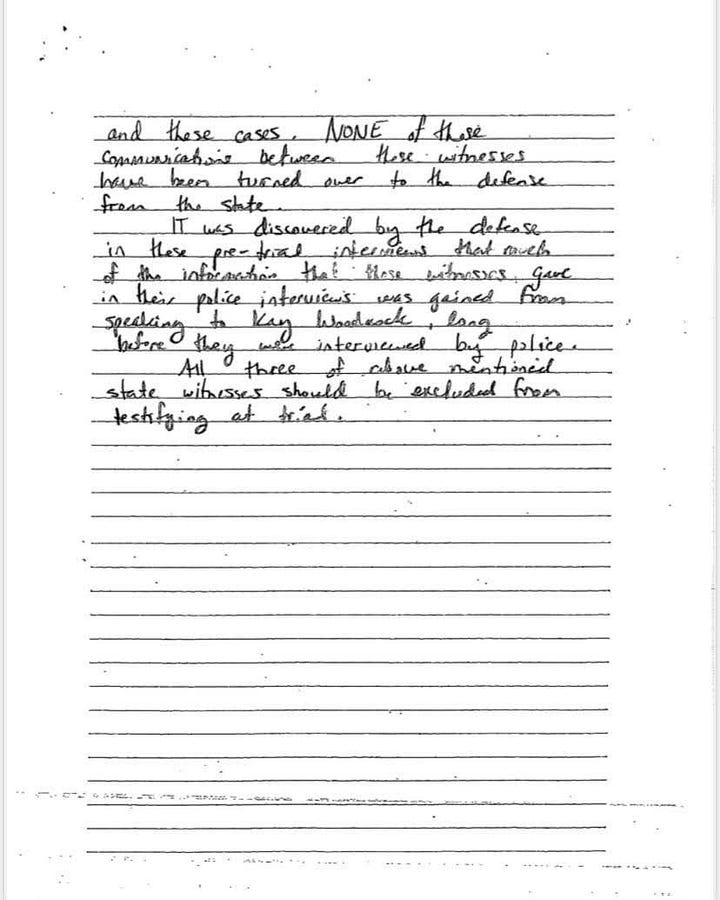 and these cases. NONE of those
communications between these witnesses
have been turned over to the defense
from the state.
IT was discovered by the defense
in these pre-trial interviews that much
of the information that these witnesses gave
in their police interviews was gained from
speaking to Kay Woodcock, long
before they were interviewed by police.
All three of above mentioned
state witnesses should be excluded from
testifying at trial.